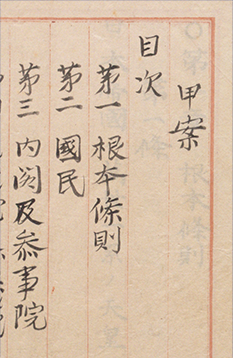 甲案
目次
第一 根本條則
第二 國民
第三 内阁及參事院